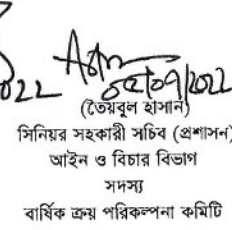 ০৫/০৭/2022
(তৈয়বুল হাসান)
সিনিয়র সহকারী সচিব (প্রশাসন)
আইন ও বিচার বিভাগ
সদস্য
বার্ষিক ক্রয় পরিকল্পনা কমিটি